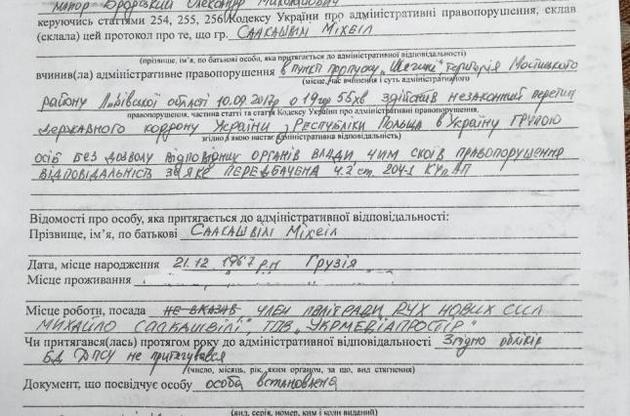 майор Бродський Олександр Миколайович
керуючись статтями 254, 255, 256 Кодексу України про адміністративні правопорушення, склав
(склала) цей протокол про те, що гр. Саакашвілі Міхеіл
(прізвище, ім’я, по батькові особи, яка притягається до адміністративної відповідальності)
вчинив(ла) адміністративне правопорушення в пункті пропуску „Шегині" територія Мостиського
(місце, час вчинення і суть адміністративного
району Львівської області 10.09.2017р о 19 год 55 хв здійснив незаконний перетин
правопорушення, частина статті та стаття Кодексу України про адміністративні правопорушення,
державного кордону України з Республіки Польща в Україну групою
згідно з якою настає адміністративна відповідальність)
осіб без дозволу відповідних органів влади, чим скоїв правопорушення
відповідальність за яке передбачена ч.2 ст. 204-1 КУпАП
Відомості про особу, яка притягається до адміністративної відповідальності:
Прізвище, ім’я, по батькові Саакашвілі Міхеіл
Дата, місце народження 21.12.1967 р.н Грузія
Місце проживання
Місце роботи, посада не вказав член політради РУХ нових сил
Михайло Саакашвілі", ТПВ „Укрмедіапростір"
Чи притягався(лась) протягом року до адміністративної відповідальності Згідно обліків
БД ДПСУ не притягувався
(число, місяць, рік, яким органом, за що, вид стягнення)
Документ, що посвідчує особу особа встановлена
(вид, серія, номер, ким і коли виданий)